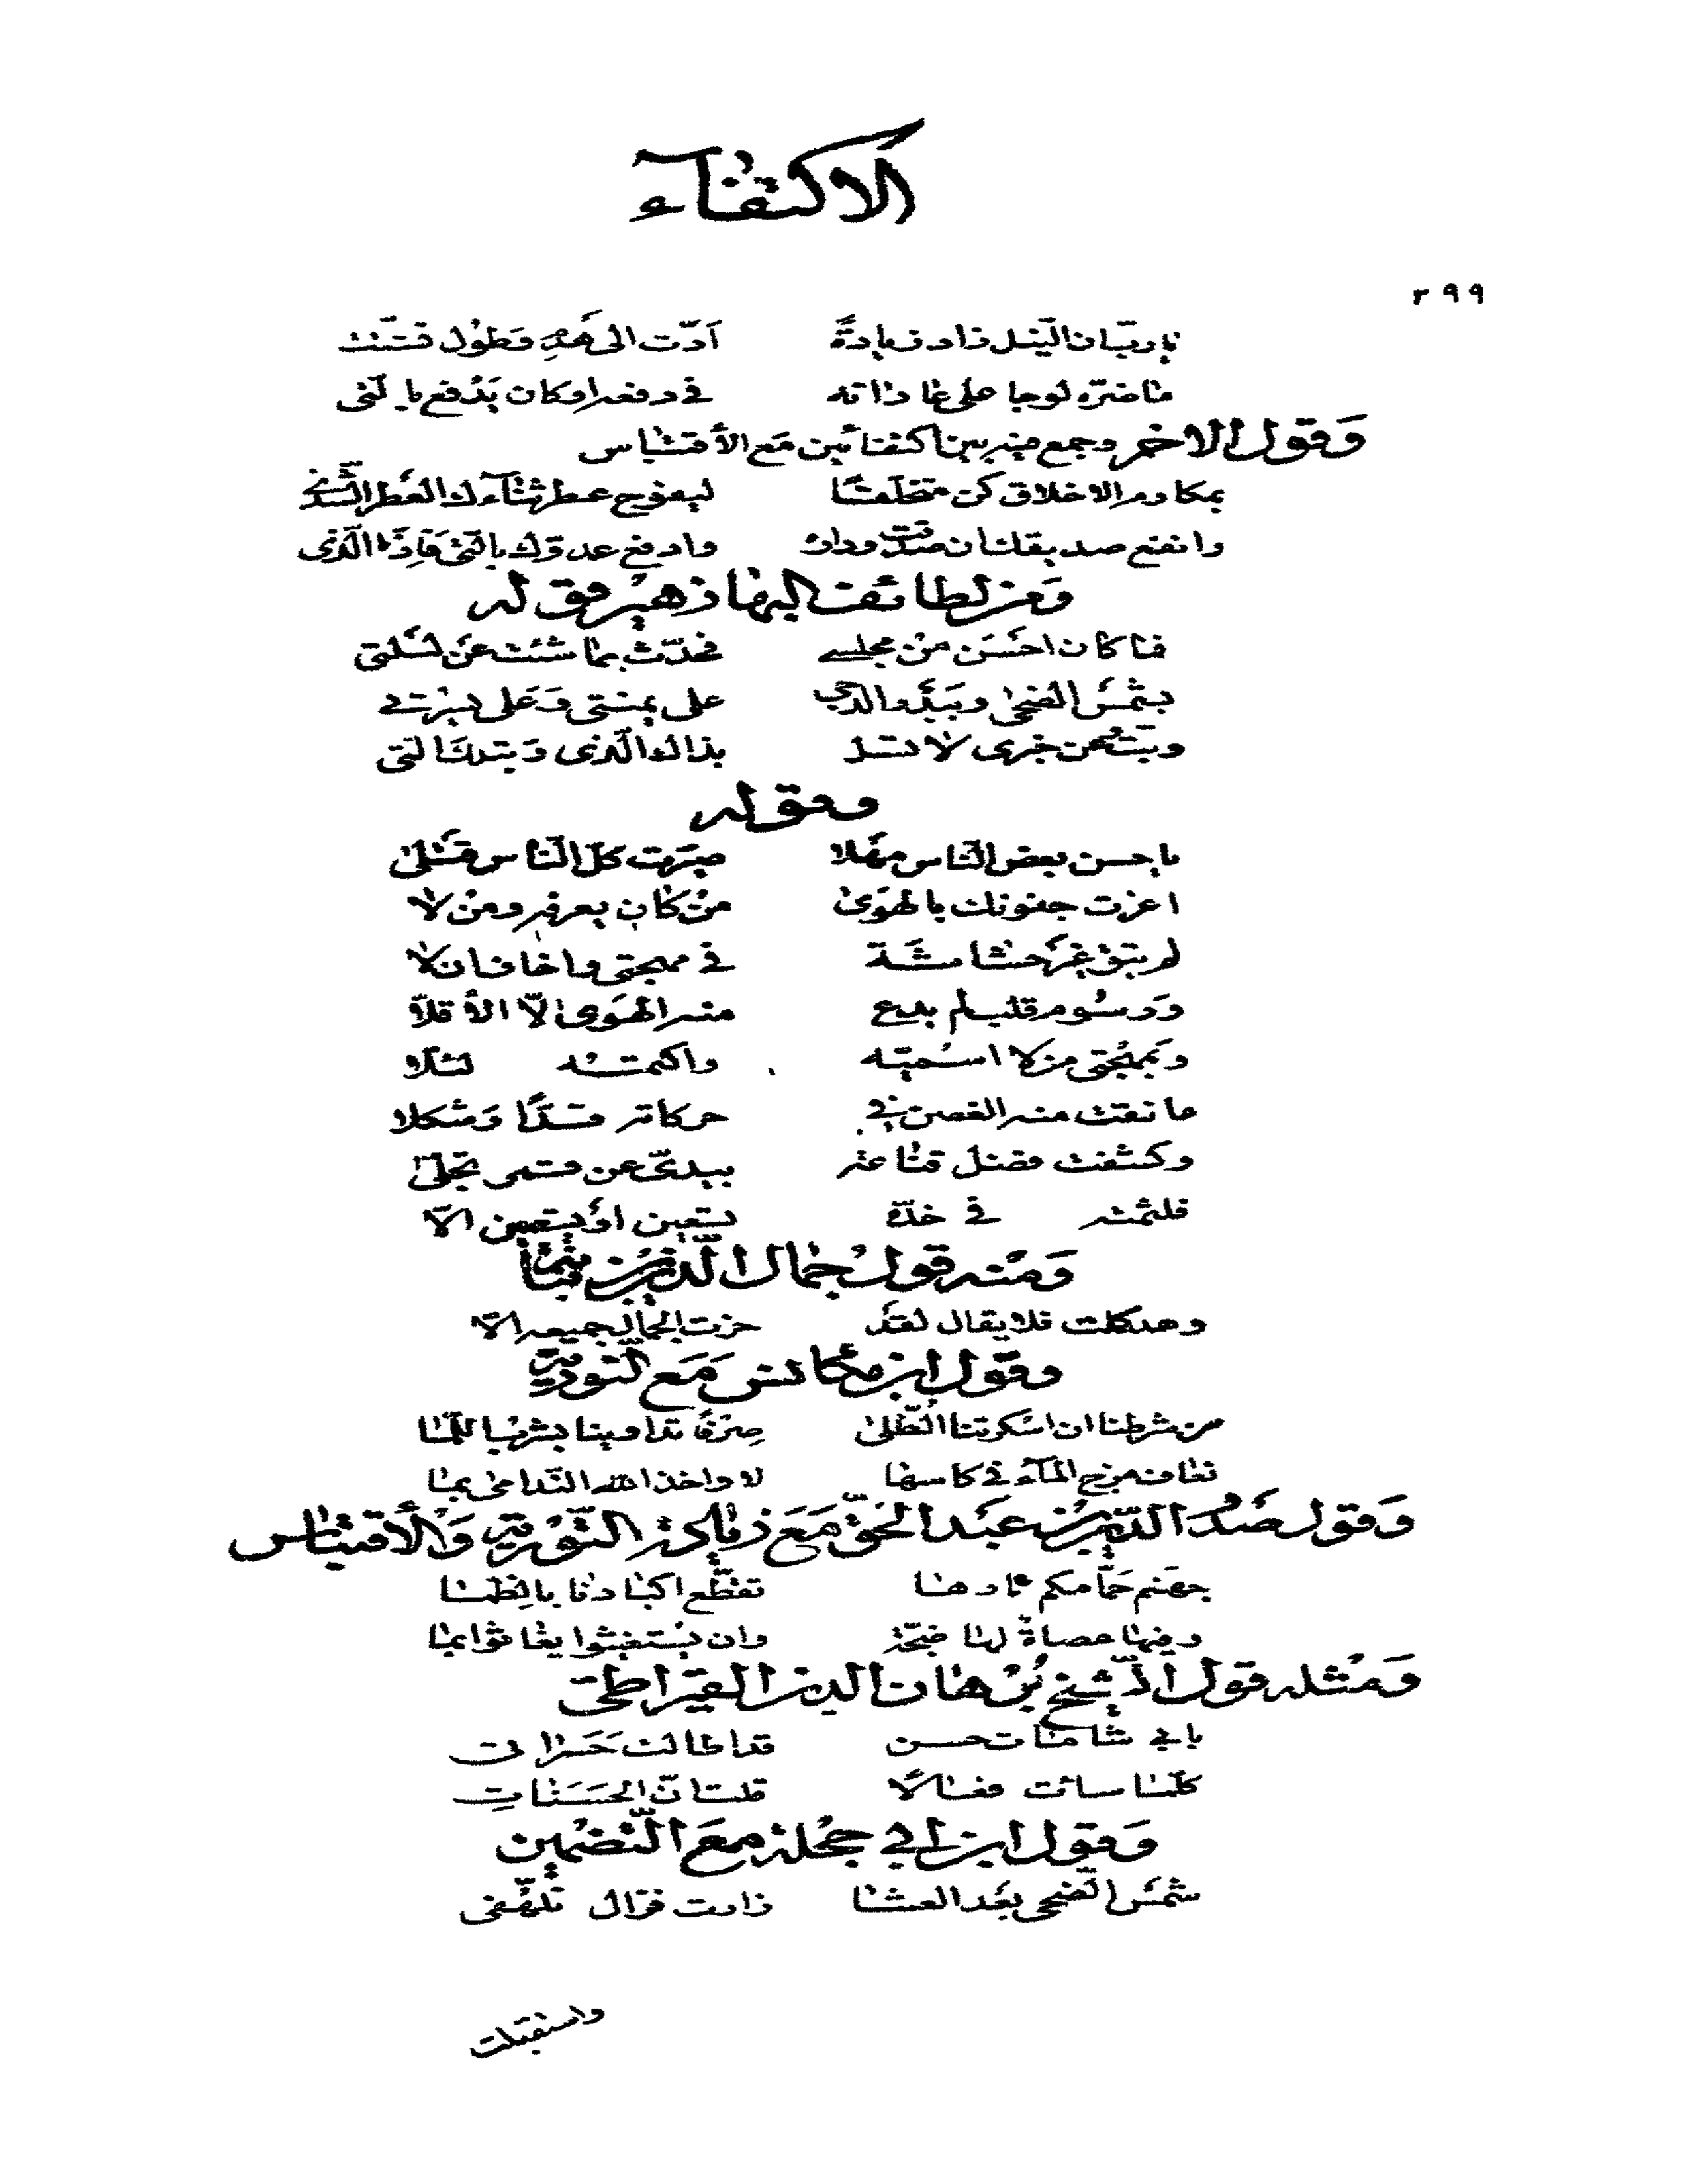 الاكتفاء
٢٩٩
يا رب ان النيل زاد زيادة أدت الى هدم وطول تشتت
ما ضره لو جا على عاداته في دفعه او كان يدفع بالتي
وقول الاخر وجمع فيه بين اكتفائين مع الأقتباس
بمكارم الاخلاق كن متخلقًا ليفوح عطر ثنآءك العطر الشذي
وانفع صديقك ان صدقت وداده وادفع عدوك بالتي فإذا الذي
ومن لطائف البها زهير قوله
فما كان احسن من مجلسي فحدّث بما شئت عن ليلتي
بشمس الضحى وببدر الدجى على يمنتي وعلى يسرتي
وبتّ وعن خبري لا تسل بذاك الذي وبتلك التي
وقوله
يا حسن بعض الناس مهلا صيّرت كل الناس قتلى
اغرت جفونك بالهوى من كان يعرفه ومن لا
لم يبق غير حشاشة في مهجتي واخاف ان لا
ورسوم قلب لم يدع منه الهوى إلّا الأقلّا
وبمهجتي من لا اسميّه واكتمته لئلا
عانقت منه الغصن في حركاته قدّا وشكلا
وكشفت فضل قناعه بيديّ عن قمر تجلى
فلثمته في خدّه تسعين او تسعين الّا
ومنه قول جمال الدين بن نباته
وحد كملت فلا يقال لقد حزت الجمال جميعه الّا
وقول ابن مكانس مع التورية
من شرطنا ان اسكرتنا الطلى صرفًا تداوينا بشرب اللمى
نعاف مزج المآء في كاسها لا واخذ الله الندامى بما
وقول صدر الدين بن عبد الحق مع زيادة التورية والأقتباس
جهنم حمّامكم نارها تقطّع اكبادنا بالظما
وفيها عصاة لها ضجّة وان يستغيثوا يغاثوا بما
ومثله قول الشيخ برهان الدين القيراطي
بابي شامات حسن قد اطالت حسراتي
كلّما ساءت فعالًا قلت انّ الحسنات
وقول ابن ابي حجلة مع التضمين
شمس الضحى بعد العشا زارت فزال تلهفي
واستقبلت